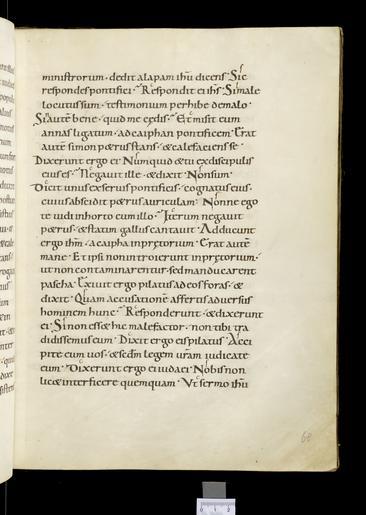 ministrorum · dedit alapam ihu dicens · Sic
respondes pontifici · Respondit ei ihs · Si male
locutus sum · testimonium perhibe de malo ·
Si autē bene · quid me cędis · Et misit eum
annas ligatum · ad caiphan pontificem · Erat
autē simon petrus stans · & calefaciens se ·
Dixerunt ergo ei · Numquid & tu ex discipulis
eius es · Negauit ille · & dixit · Non sum ·
Dicit unus ex seruis pontificis · cognatus eius ·
cuius abscidit petrus auriculam · Nonne ego
te uidi in horto cum illo · Iterum negauit
petrus · & statim gallus cantauit · Adducunt
ergo ihm · a caipha in prętorium · Erat autē
mane · Et ipsi non introierunt in prętorium ·
ut non contaminarentur · sed manducarent
pascha · Exiuit ergo pilatus ad eos foras · &
dixit · Quam accusationē affertis aduersus
hominem hunc · Responderunt · & dixerunt
ei · Si non ess& hic malefactor · non tibi tra
didissemus eum · Dixit ergo eis pilatus · Acci
pite eum uos · & scdm legem uram iudicate
eum · Dixerunt ergo ei iudaei · Nobis non
lic& interficere quemquam · Ut sermo ihu
60